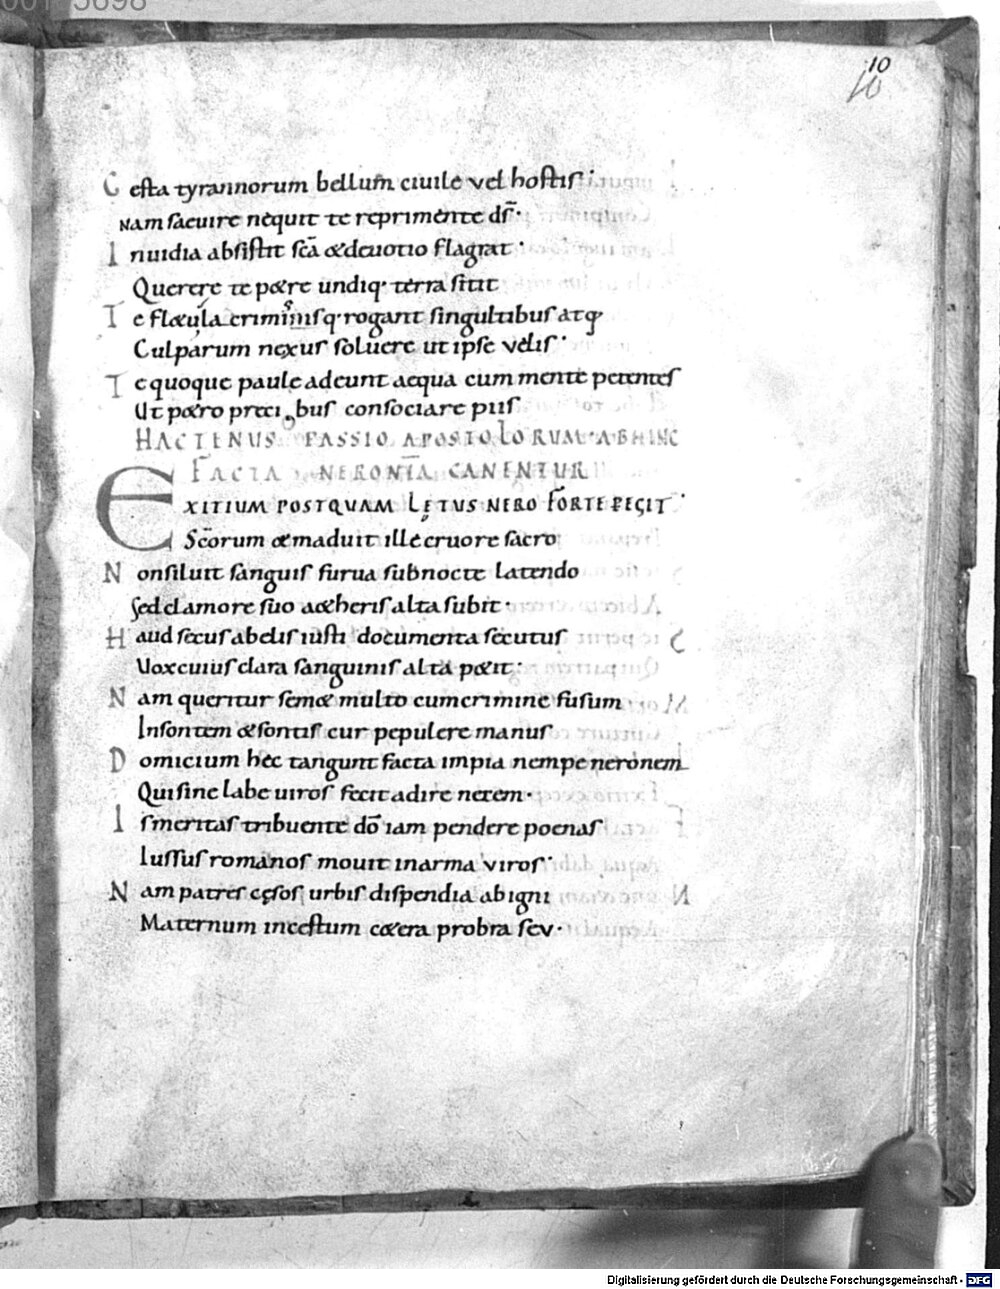 00175698
10
10
Gesta tyrannorum bellum ciuile vel hostis·
Nam saeuire nequit te reprimente ds̄·
Inuidia absistit scā &deuotio flagrat·
Querere te p&re undiq· terra sitit
Te fl&u la criminisq· rogant singultibus atq·
Culparum nexus soluere ut ipse velis·
Te quoque paule adeunt aequa cum mente petentes
Ut p&ro precibus consociare piis
HACTENUS PASSIO APOSTOLORUM·ABHINC
FACTA NERONIA CANENTUR
EXITIUM POSTQUAM LĘTUS NERO FORTE FECIT·
Scōrum &maduit ille cruore sacro
Nonsiluit sanguis furua subnocte latendo
Sed clamore suo a&heris alta subit·
Haud secus abelis iusti documenta secutus
Uox cuius clara sanguinis alta p&it·
Nam queritur sem& multo cum crimine fusum
Insontem &sontis cur pepulere manus
Domicium hec tangunt facta impia nempe neronem
Qui sine labe uiros fecit adire necem·
Is meritas tribuente dō iam pendere poenas
Iussus romanos mouit inarma viros·
Nam patres cęsos urbis dispendia ab igni
Maternum incestum c&era probra sev·
Digitalisierung gefördert durch die Deutsche Forschungsgemeinschaft - DFG